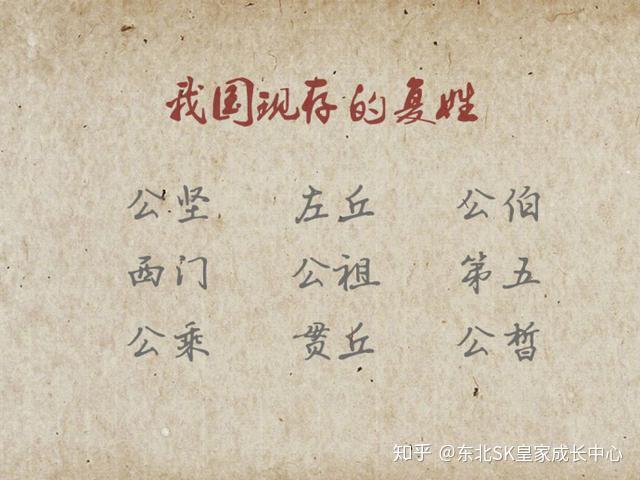 我国现存的复姓
公坚 左丘 公伯
西门 公祖 第五
公乘 贯丘 公皙
知乎 @东北SK皇家成长中心